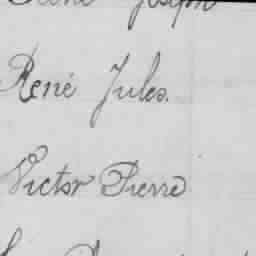 Joseph
René Jules.
Victor Pierre